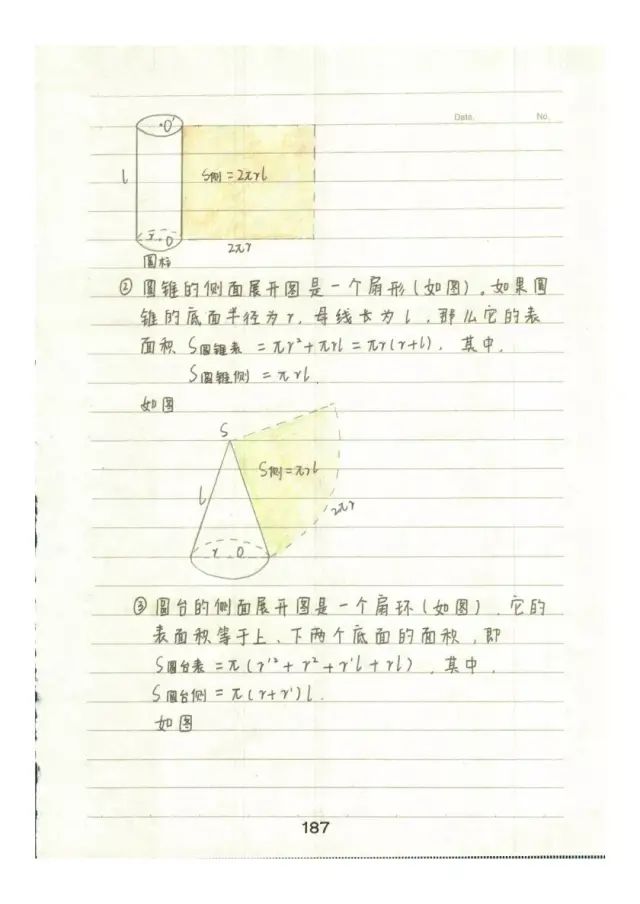 Date. No.
O'
l
S侧 = 2πrl
r O
2πr
圆柱
② 圆锥的侧面展开图是一个扇形(如图)。如果圆
锥的底面半径为r,母线长为l,那么它的表
面积 S圆锥表 = πr²+πrl = πr(r+l). 其中,
S圆锥侧 = πrl.
如图
S
S侧=πrl
l
2πr
r O
③ 圆台的侧面展开图是一个扇环(如图),它的
表面积等于上、下两个底面的面积,即
S圆台表 = π(r'²+r²+r'l+rl),其中,
S圆台侧 = π(r+r')l.
如图
187